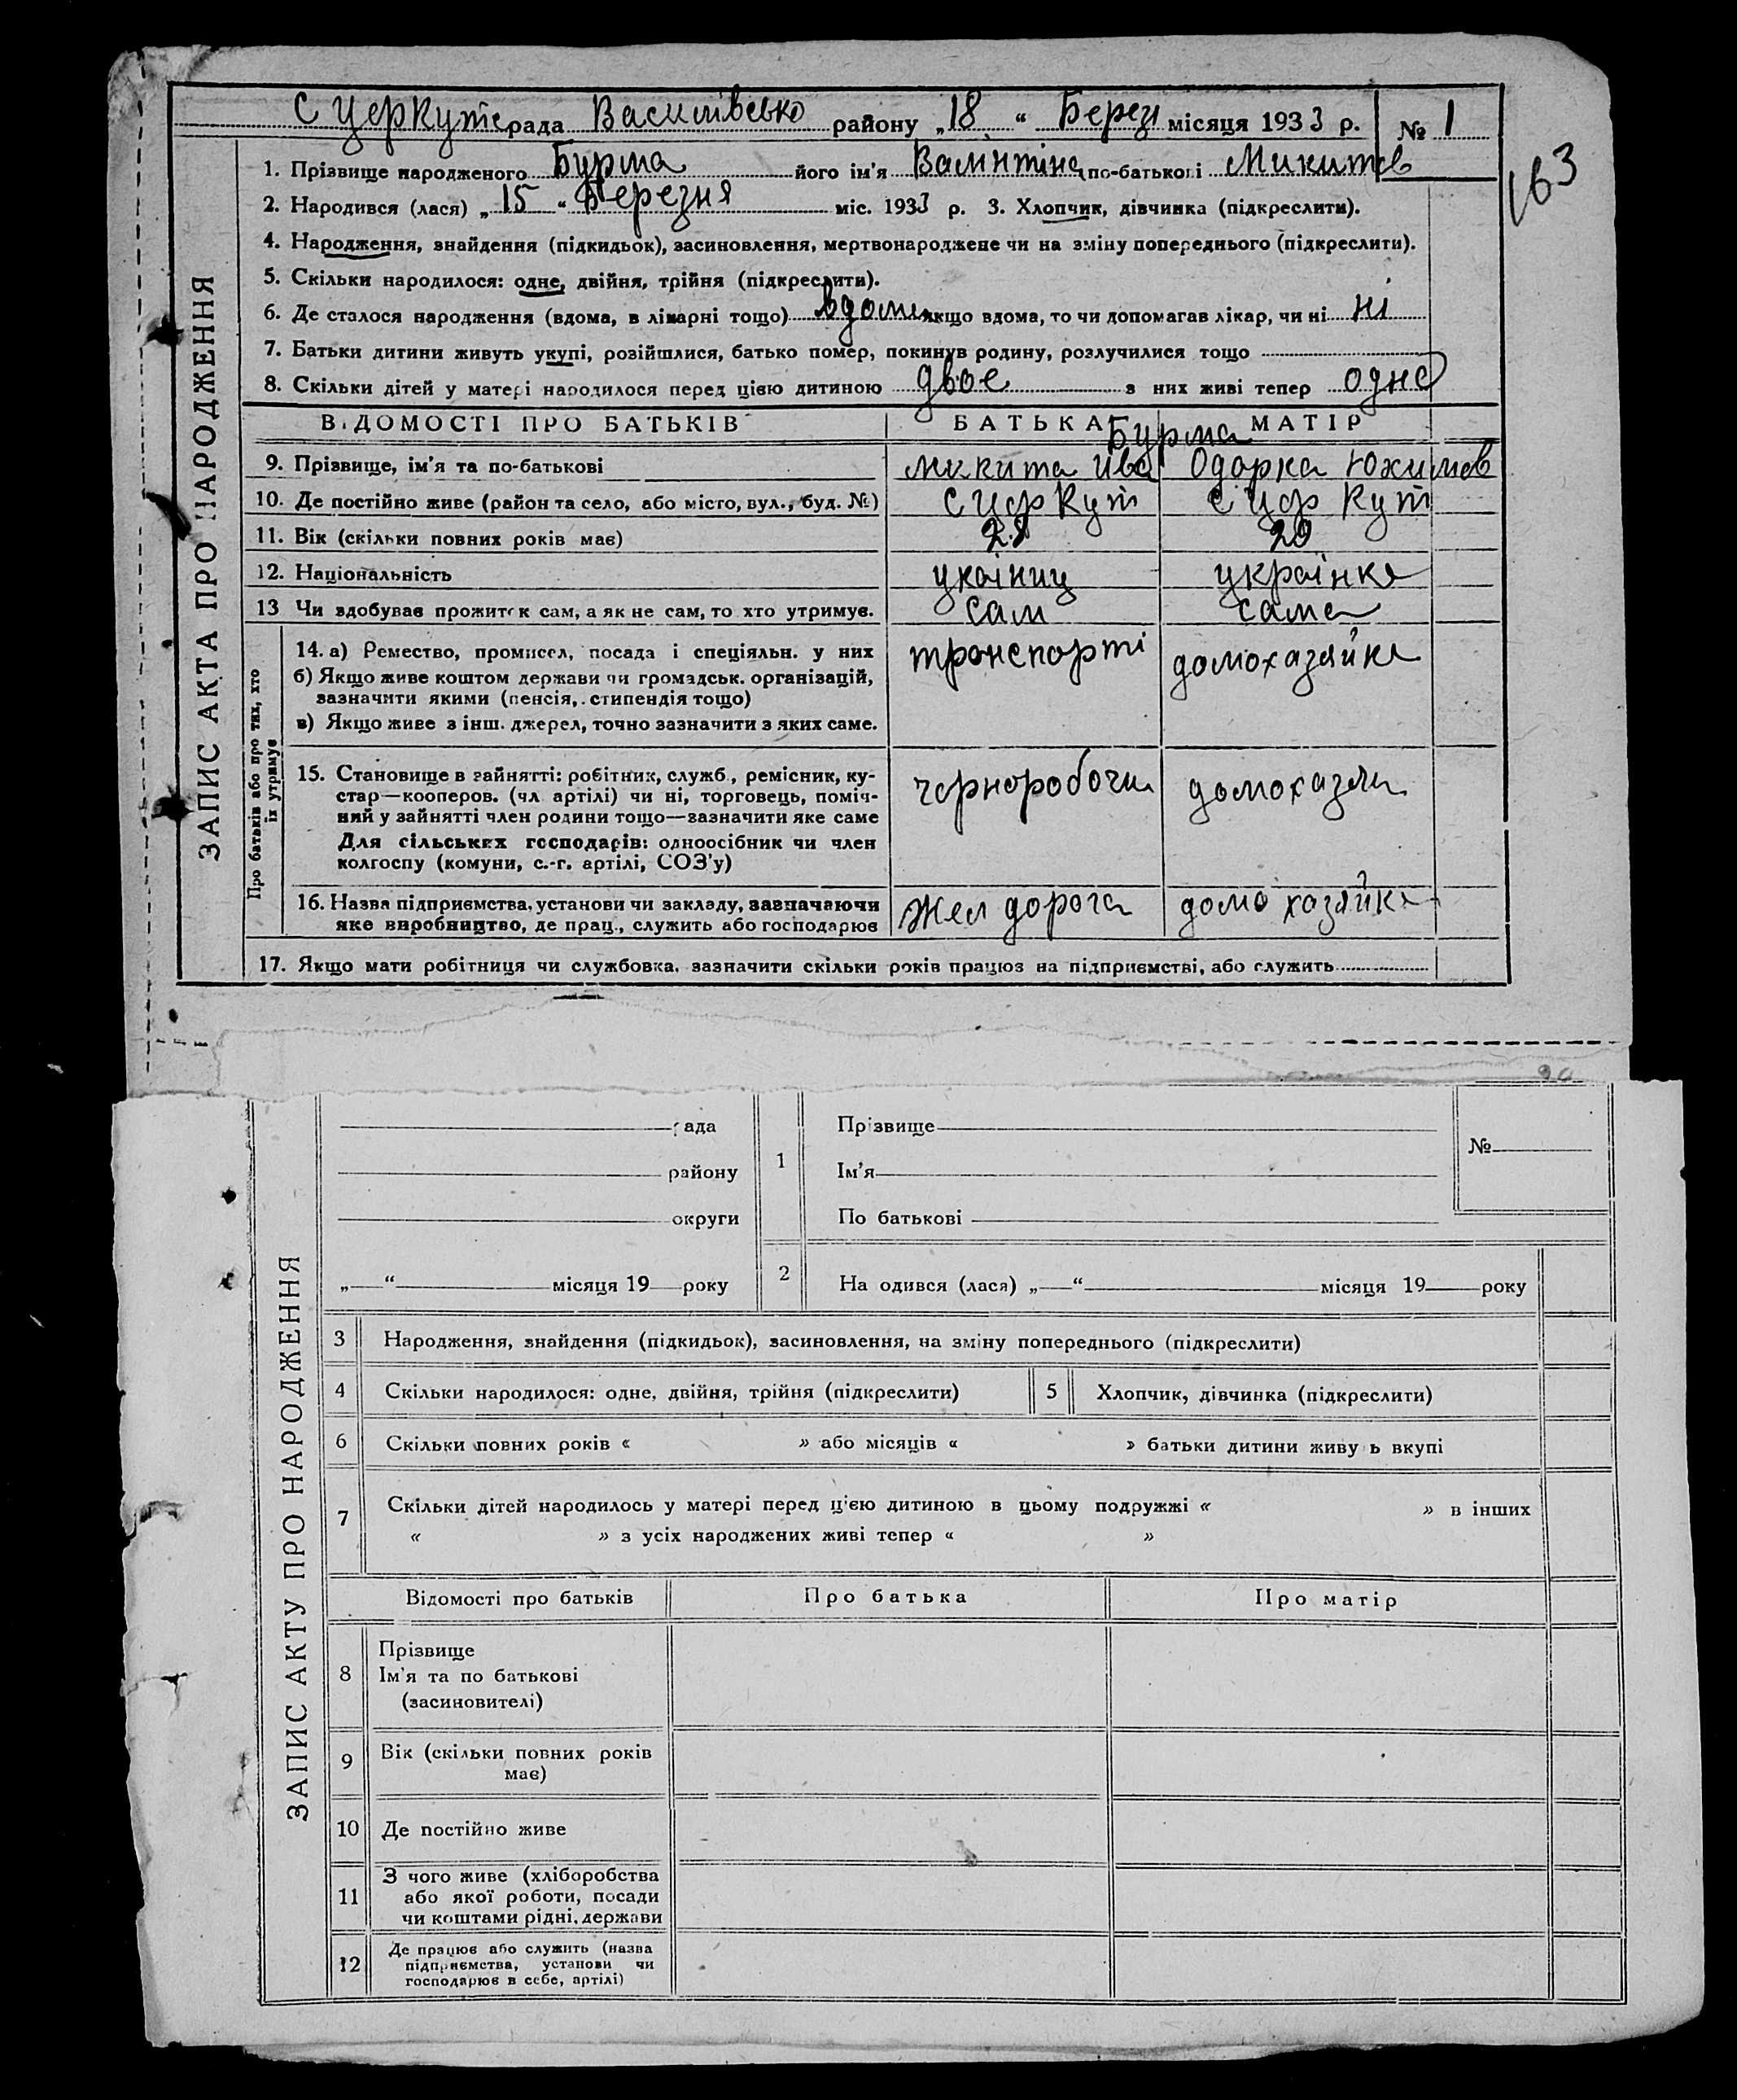 С ЦерКутс рада Василівсько району „18“ Берез місяця 1933 р. № 1
163
1. Прізвище народженого Бурма його ім'я Валінтіна по-батькові Микитов
2. Народився (лася) „15“ Березня міс. 1933 р. 3. Хлопчик, дівчинка (підкреслити).
4. Народження, знайдення (підкидьок), засиновлення, мертвонароджене чи на зміну попереднього (підкреслити).
5. Скільки народилося: одне, двійня, трійня (підкреслити).
6. Де сталося народження (вдома, в лікарні тощо) вдома якщо вдома, то чи допомагав лікар, чи ні ні
7. Батьки дитини живуть укупі, розійшлися, батько помер, покинув родину, розлучилися тощо
8. Скільки дітей у матері народилося перед цією дитиною двое з них живі тепер одно
ЗАПИС АКТА ПРО НАРОДЖЕННЯ
ВІДОМОСТІ ПРО БАТЬКІВ БАТЬКА МАТІР
Бурма
9. Прізвище, ім'я та по-батькові Микита Ива Одарка Юхимов
10. Де постійно живе (район та село, або місто, вул., буд. №) С Цер Кут С Цер Кут
11. Вік (скільки повних років має) 28 29
12. Національність украіниц украінка
13 Чи здобуває прожиток сам, а як не сам, то хто утримує. сам сама
Про батьків або про тих, хто їх утримує
14. а) Ремество, промисел, посада і спеціяльн. у них транспорті домохазяйка
б) Якщо живе коштом держави чи громадськ. організацій,
зазначити якими (пенсія, стипендія тощо)
в) Якщо живе з інш. джерел, точно зазначити з яких саме.
15. Становище в зайнятті: робітник, служб., ремісник, ку-
стар—кооперов. (чл артілі) чи ні, торговець, поміч- чорноробочи домохазяи
ний у зайнятті член родини тощо—зазначити яке саме
Для сільських господарів: одноосібник чи член
колгоспу (комуни, с.-г. артілі, СОЗ'у)
16. Назва підприємства, установи чи закладу, зазначаючи Жел дорога домо хазяйка
яке виробництво, де прац., служить або господарює
17. Якщо мати робітниця чи службовка, зазначити скільки років працює на підприємстві, або служить
ЗАПИС АКТУ ПРО НАРОДЖЕННЯ
рада 1 Прізвище №
району Ім'я
округи По батькові
„ “ місяця 19 року 2 На одився (лася) „ “ місяця 19 року
3 Народження, знайдення (підкидьок), засиновлення, на зміну попереднього (підкреслити)
4 Скільки народилося: одне, двійня, трійня (підкреслити) 5 Хлопчик, дівчинка (підкреслити)
6 Скільки повних років « » або місяців « » батьки дитини живу ь вкупі
7 Скільки дітей народилось у матері перед цією дитиною в цьому подружжі « » в інших
« » з усіх народжених живі тепер « »
Відомості про батьків Про батька Про матір
8 Прізвище
Ім'я та по батькові
(засиновителі)
9 Вік (скільки повних років
має)
10 Де постійно живе
11 З чого живе (хліборобства
або якої роботи, посади
чи коштами рідні, держави
12 Де працює або служить (назва
підприємства, установи чи
господарює в себе, артілі)